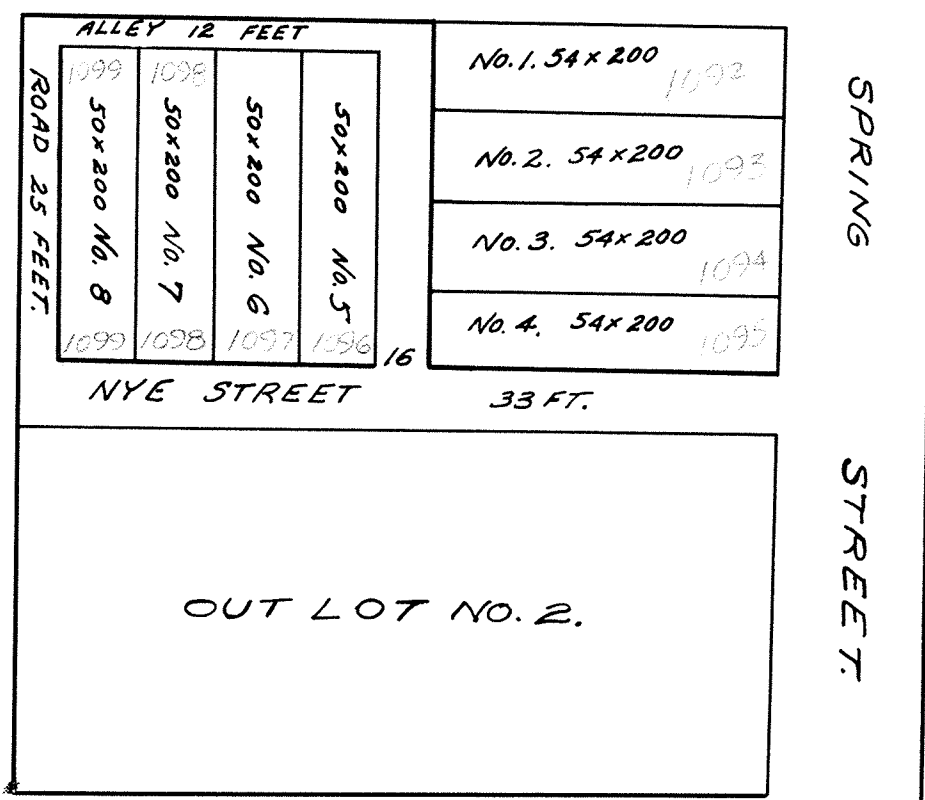 ALLEY 12 FEET
ROAD 25 FEET.
1099
1098
50x200 No. 8
50x200 No. 7
50x200 No. 6
50x200 No. 5
1099
1098
1097
1096
16
No. 1. 54 x 200
1092
No. 2. 54 x 200
1093
No. 3. 54 x 200
1094
No. 4. 54 x 200
1095
NYE STREET
33 FT.
SPRING
STREET.
OUT LOT NO. 2.